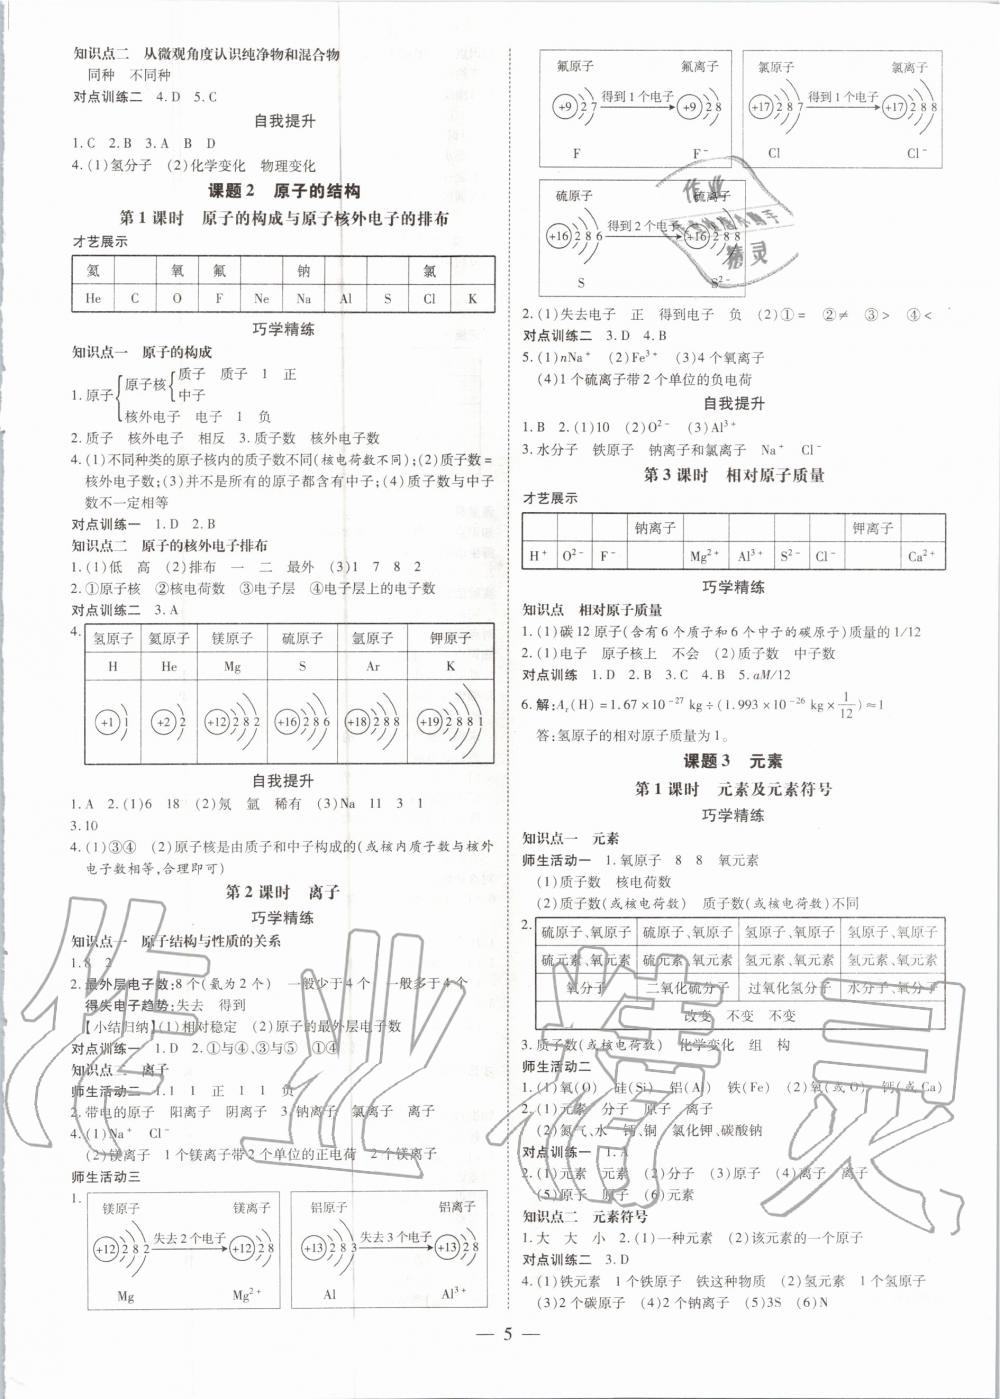 知识点二　从微观角度认识纯净物和混合物
同种　不同种
对点训练二　4.D　5.C
自我提升
1.C　2.B　3.A　B　D
4.(1)氢分子　(2)化学变化　物理变化
课题2　原子的结构
第1课时　原子的构成与原子核外电子的排布
才艺展示
氦　氧　氟　钠　氯
He　C　O　F　Ne　Na　Al　S　Cl　K
巧学精练
知识点一　原子的构成
1.原子{原子核{质子　质子　1　正
中子
核外电子　电子　1　负
2.质子　核外电子　相反　3.质子数　核外电子数
4.(1)不同种类的原子核内的质子数不同(核电荷数不同);(2)质子数=
核外电子数;(3)并不是所有的原子都含有中子;(4)质子数与中子
数不一定相等
对点训练一　1.D　2.B
知识点二　原子的核外电子排布
1.(1)低　高　(2)排布　一　二　最外　(3)1　7　8　2
2.①原子核　②核电荷数　③电子层　④电子层上的电子数
对点训练二　3.A
4.
氢原子　氦原子　镁原子　硫原子　氩原子　钾原子
H　He　Mg　S　Ar　K
+1 1　+2 2　+12 2 8 2　+16 2 8 6　+18 2 8 8　+19 2 8 8 1
自我提升
1.A　2.(1)6　18　(2)氖　氩　稀有　(3)Na　11　3　1
3.10
4.(1)③④　(2)原子核是由质子和中子构成的(或核内质子数与核外
电子数相等,合理即可)
第2课时　离子
巧学精练
知识点一　原子结构与性质的关系
1.8　2
2.最外层电子数:8个(氦为2个)　一般少于4个　一般多于4个
得失电子趋势:失去　得到
【小结归纳】(1)相对稳定　(2)原子的最外层电子数
对点训练一　1.D　2.①与④、③与⑤　①④
知识点二　离子
师生活动二　1.1　1　正　1　1　负
2.带电的原子　阳离子　阴离子　3.钠离子　氯离子　离子
4.(1)Na⁺　Cl⁻
(2)镁离子　1个镁离子带2个单位的正电荷　2个镁离子
师生活动三
1.
镁原子　镁离子
+12 2 8 2　失去2个电子　+12 2 8
Mg　Mg²⁺
铝原子　铝离子
+13 2 8 3　失去3个电子　+13 2 8
Al　Al³⁺
氟原子　氟离子
+9 2 7　得到1个电子　+9 2 8
F　F⁻
氯原子　氯离子
+17 2 8 7　得到1个电子　+17 2 8 8
Cl　Cl⁻
硫原子　硫离子
+16 2 8 6　得到2个电子　+16 2 8 8
S　S²⁻
2.(1)失去电子　正　得到电子　负　(2)①=　②≠　③>　④<
对点训练二　3.D　4.B
5.(1)nNa⁺　(2)Fe³⁺　(3)4个氧离子
(4)1个硫离子带2个单位的负电荷
自我提升
1.B　2.(1)10　(2)O²⁻　(3)Al³⁺
3.水分子　铁原子　钠离子和氯离子　Na⁺　Cl⁻
第3课时　相对原子质量
才艺展示
钠离子　钾离子
H⁺　O²⁻　F⁻　Mg²⁺　Al³⁺　S²⁻　Cl⁻　Ca²⁺
巧学精练
知识点　相对原子质量
1.(1)碳12原子(含有6个质子和6个中子的碳原子)质量的1/12
2.(1)电子　原子核上　不会　(2)质子数　中子数
对点训练　1.D　2.B　3.C　4.B　5.aM/12
6.解:Aᵣ(H)=1.67×10⁻²⁷ kg÷(1.993×10⁻²⁶ kg×1/12)≈1
答:氢原子的相对原子质量为1。
课题3　元素
第1课时　元素及元素符号
巧学精练
知识点一　元素
师生活动一　1.氧原子　8　8　氧元素
(1)质子数　核电荷数
(2)质子数(或核电荷数)　质子数(或核电荷数)不同
2.
硫原子、氧原子　硫原子、氧原子　氢原子、氧原子　氢原子、氧原子
硫元素、氧元素　硫元素、氧元素　氢元素、氧元素　氢元素、氧元素
氧分子　二氧化硫分子　过氧化氢分子　水分子、氧分子
改变　不变　不变
3.质子数(或核电荷数)　化学变化　组　构
师生活动二
1.(1)氧(O)　硅(Si)　铝(Al)　铁(Fe)　(2)氧(或O)　钙(或Ca)
2.(1)元素　分子　原子　离子
(2)氮气、水　锂、铜　氯化钾、碳酸钠
对点训练一　1.A
2.(1)元素　元素　(2)分子　(3)原子　(4)离子　离子
(5)原子　原子　(6)元素
知识点二　元素符号
1.大　大　小　2.(1)一种元素　(2)该元素的一个原子
对点训练二　3.D
4.(1)铁元素　1个铁原子　铁这种物质　(2)氢元素　1个氢原子
(3)2个碳原子　(4)2个钠离子　(5)3S　(6)N
— 5 —
作业
精灵
作业精灵